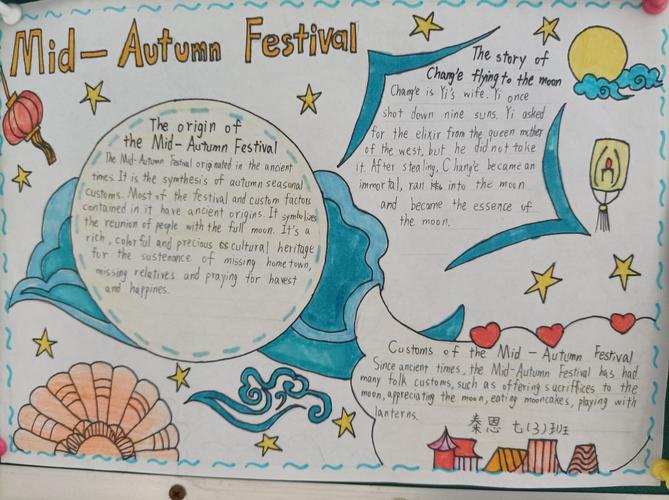 Mid-Autumn Festival
The origin of
the Mid-Autumn Festival
The Mid-Autumn Festival originated in the ancient
times. It is the synthesis of autumn seasonal
customs. Most of the festival and custom factors
contained in it have ancient origins. It symbolizes
the reunion of people with the full moon. It's a
rich, colorful and precious cultural heritage
for the sustenance of missing hometown,
missing relatives and praying for harvest
and happines.
The story of
Chang'e flying to the moon
Chang'e is Yi's wife. Yi once
shot down nine suns. Yi asked
for the elixir from the queen mother
of the west, but he did not take
it. After stealing, Chang'e became an
immortal, ran into the moon
and became the essence of
the moon.
Customs of the Mid-Autumn Festival
Since ancient times, the Mid-Autumn Festival has had
many folk customs, such as offering sucriffices to the
moon, appreciating the moon, eating mooncakes, playing with
lanterns.
秦恩 七(3)班